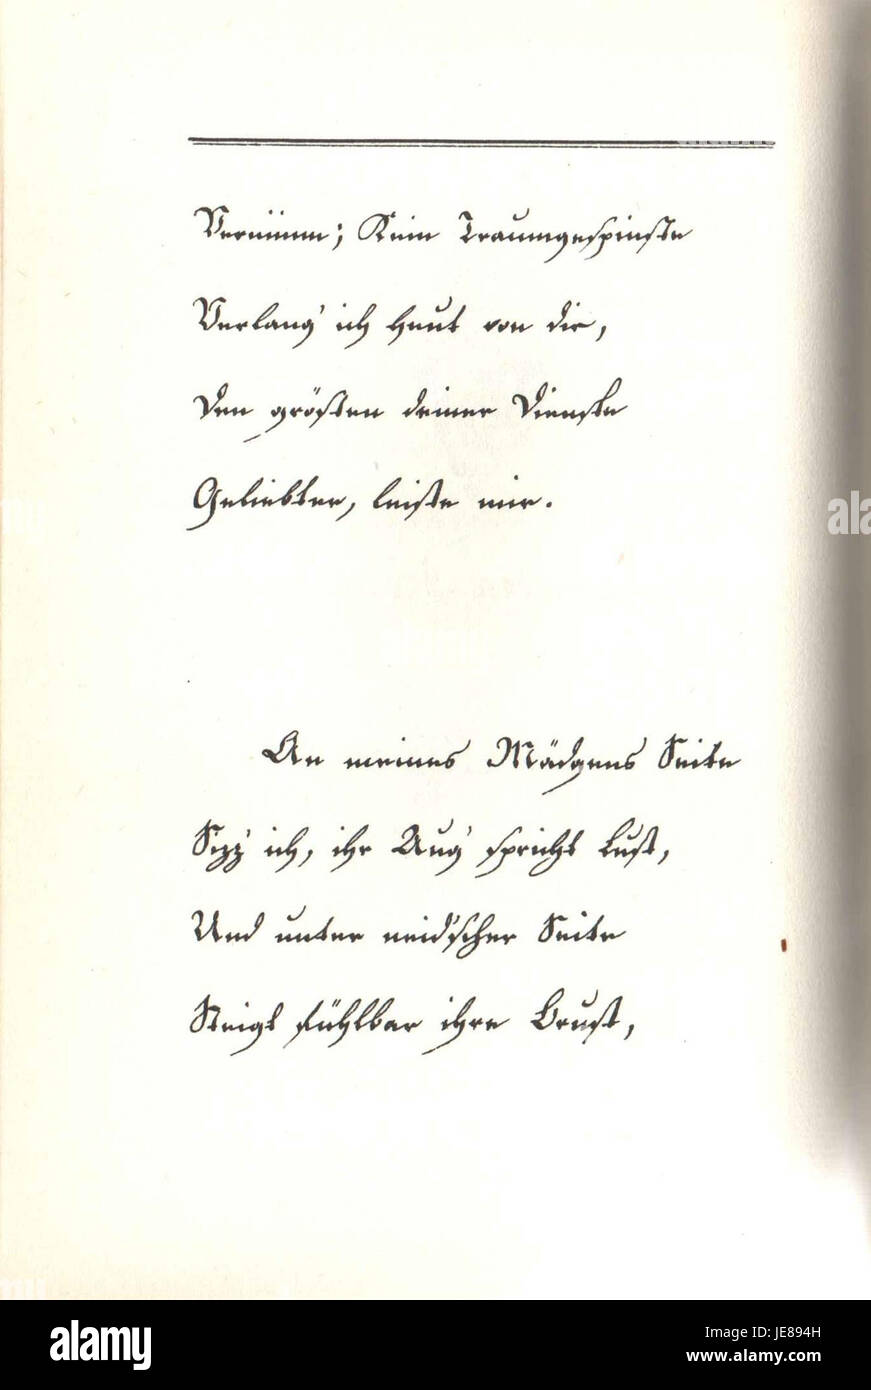 Vernimm; Kein Traumgespinste
Verlang' ich heut von dir,
Den größten deiner Dienste
Geliebter, leiste mir.
An meines Mädgens Seite
Sizz' ich, ihr Aug' spricht Lust,
Und unter neid'scher Seite
Steigt fühlbar ihre Brust,
a
alamy
Image ID: JE894H
www.alamy.com